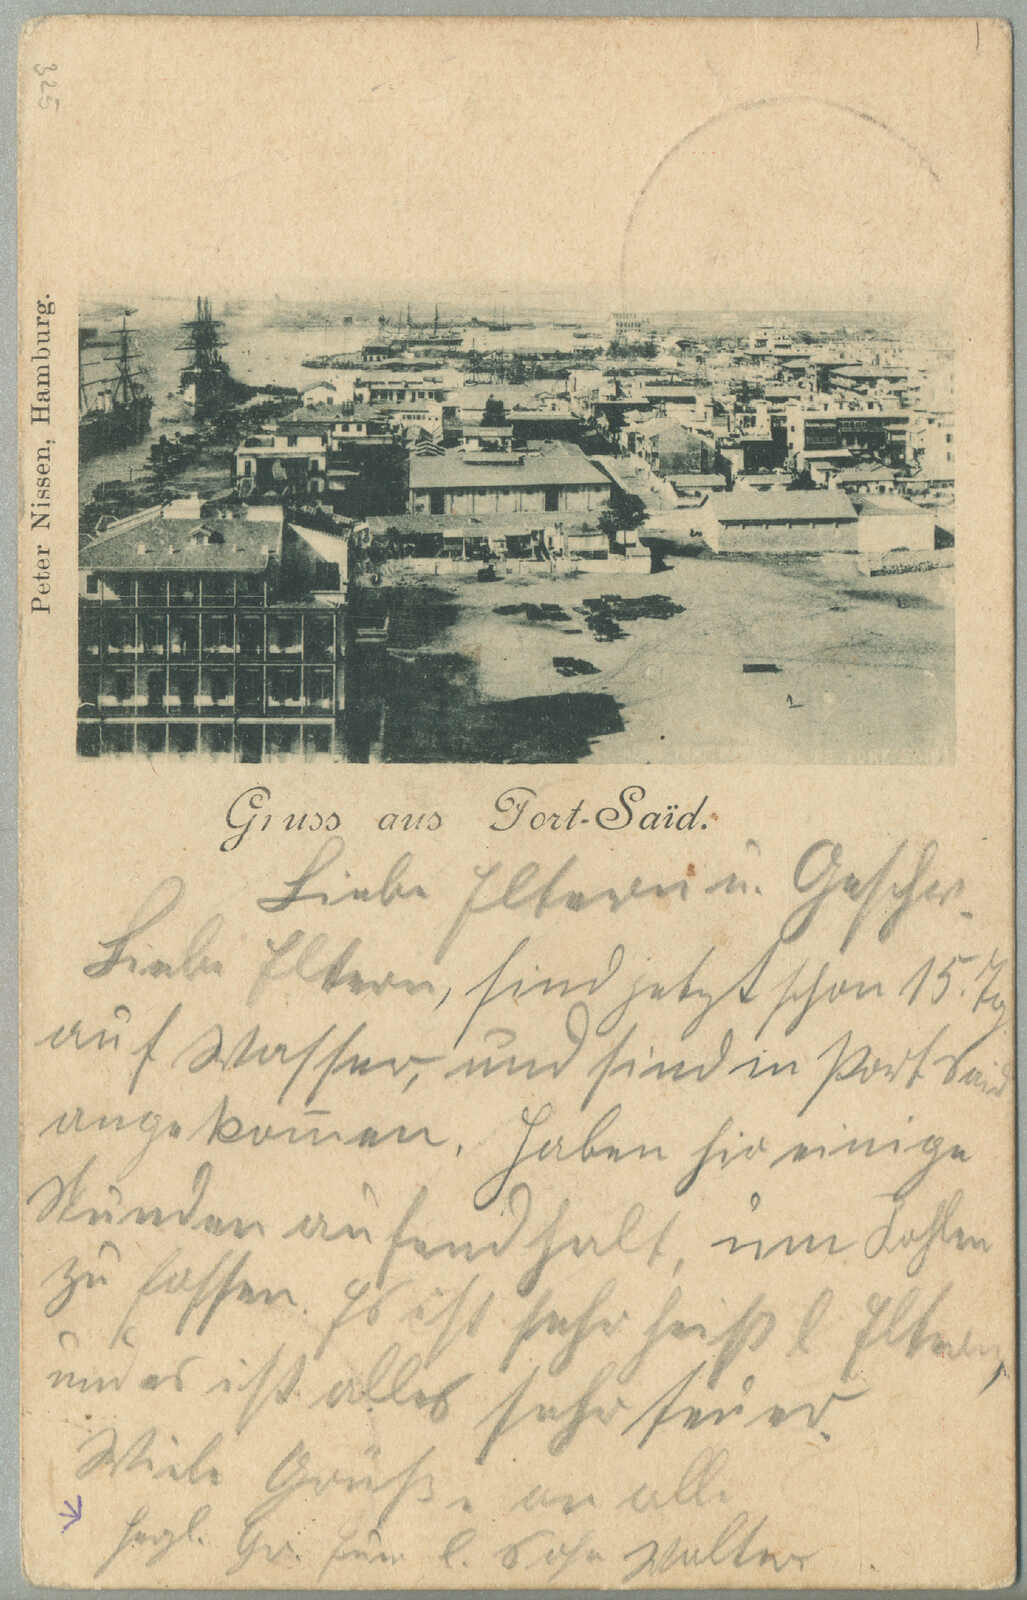 325
Peter Nissen, Hamburg.
Gruss aus Port-Saïd.
Liebe Eltern u. Geschw.
Liebe Eltern, sind jetzt schon 15. Tg.
auf Wasser, und sind in Port Said
angekommen. Haben hir einige
Stunden aufendhalt, um Kohlen
zu fassen. Es ist sehr heiß l. Eltern,
und es ist alles sehr teuer.
Viele Grüße an alle
herzl. Gr. Euer l. Sohn Walter